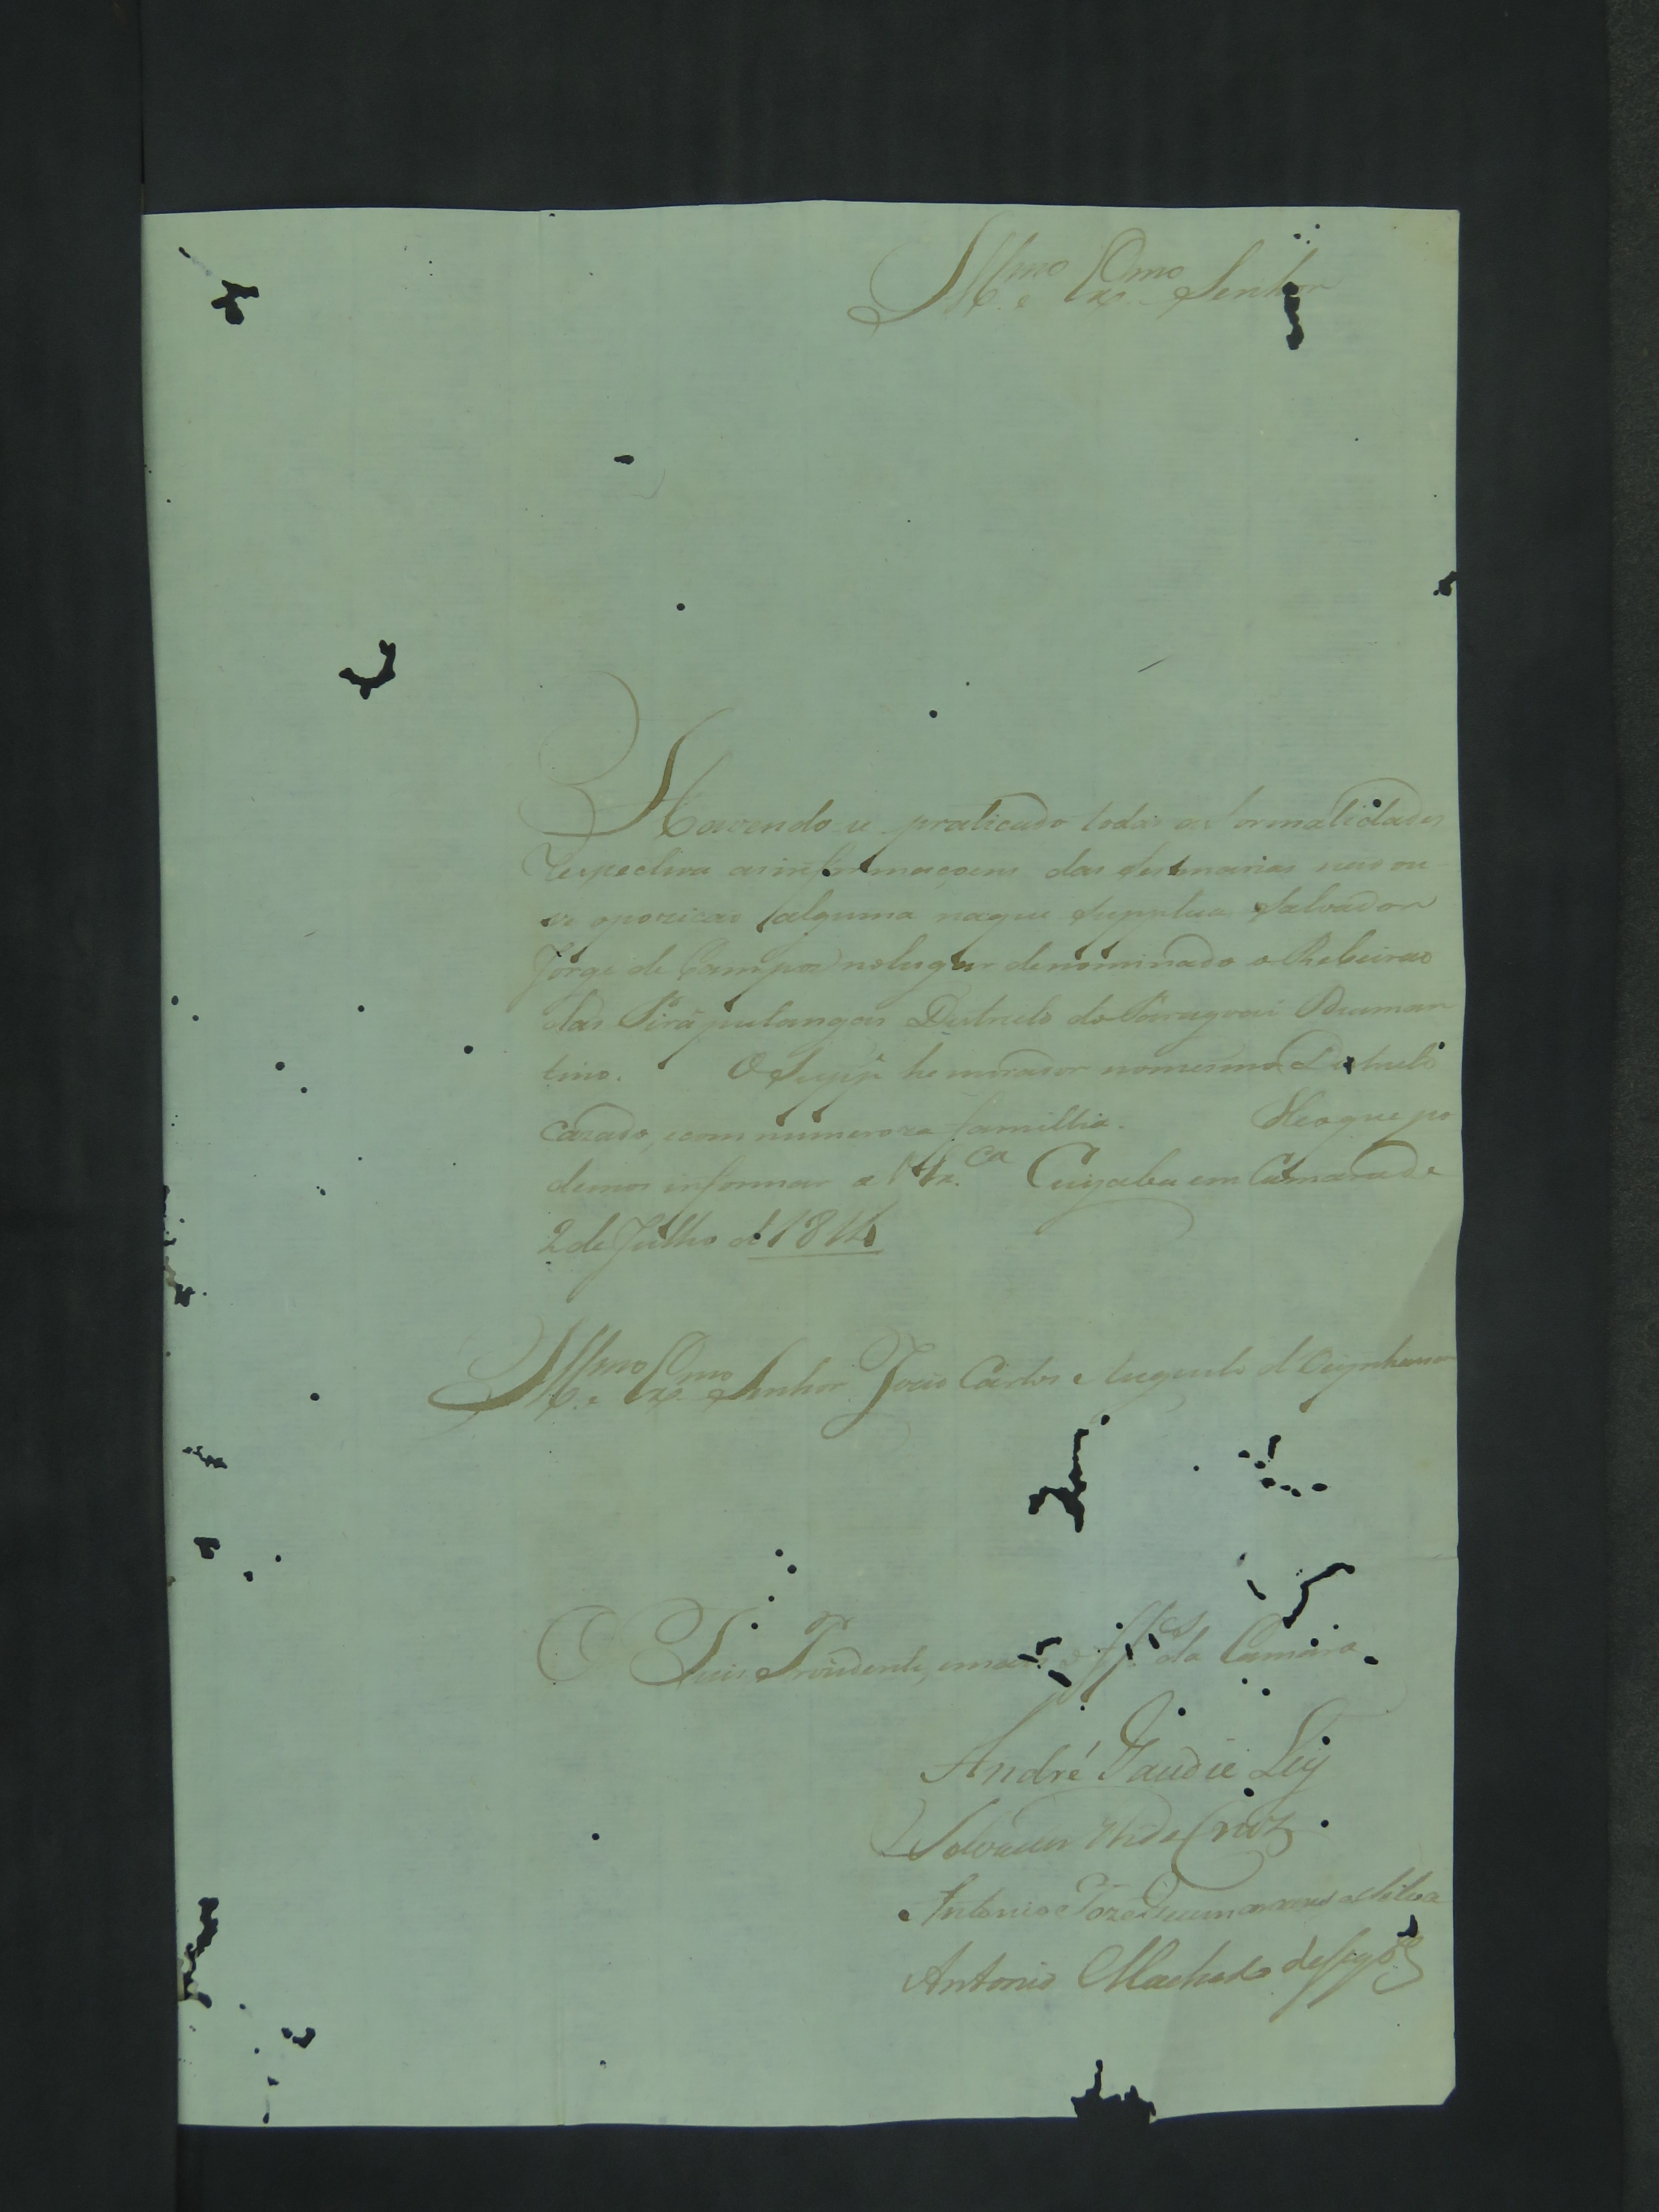 Ill.mo e Ex.mo Senhor
Havendo se praticado todas as formalidades
respectiva as informaçoens das Sesmarias naõ ou
ve opozicaõ alguma naque Supplica Salvador
Jorge de Campos nolugar denominado o Rebeiraõ
das Piraputangas Destricto do Paraguai Diaman
tino. O Supp.e he morador nomesmo Destricto
cazado, ecom numeroza familia. Heoque po
demos informar a V Ex.ca Cuyaba em Camara de
2 de Julho de 1814
Ill.mo e Ex.mo Senhor Joaõ Carlos Augusto d'Oeynhausen
O Juis Prezidente, emais Off.es da Camara
André Gaudie Ley
Salvador da Cruz
Antonio Joze Guimaraens e Silva
Antonio Machado